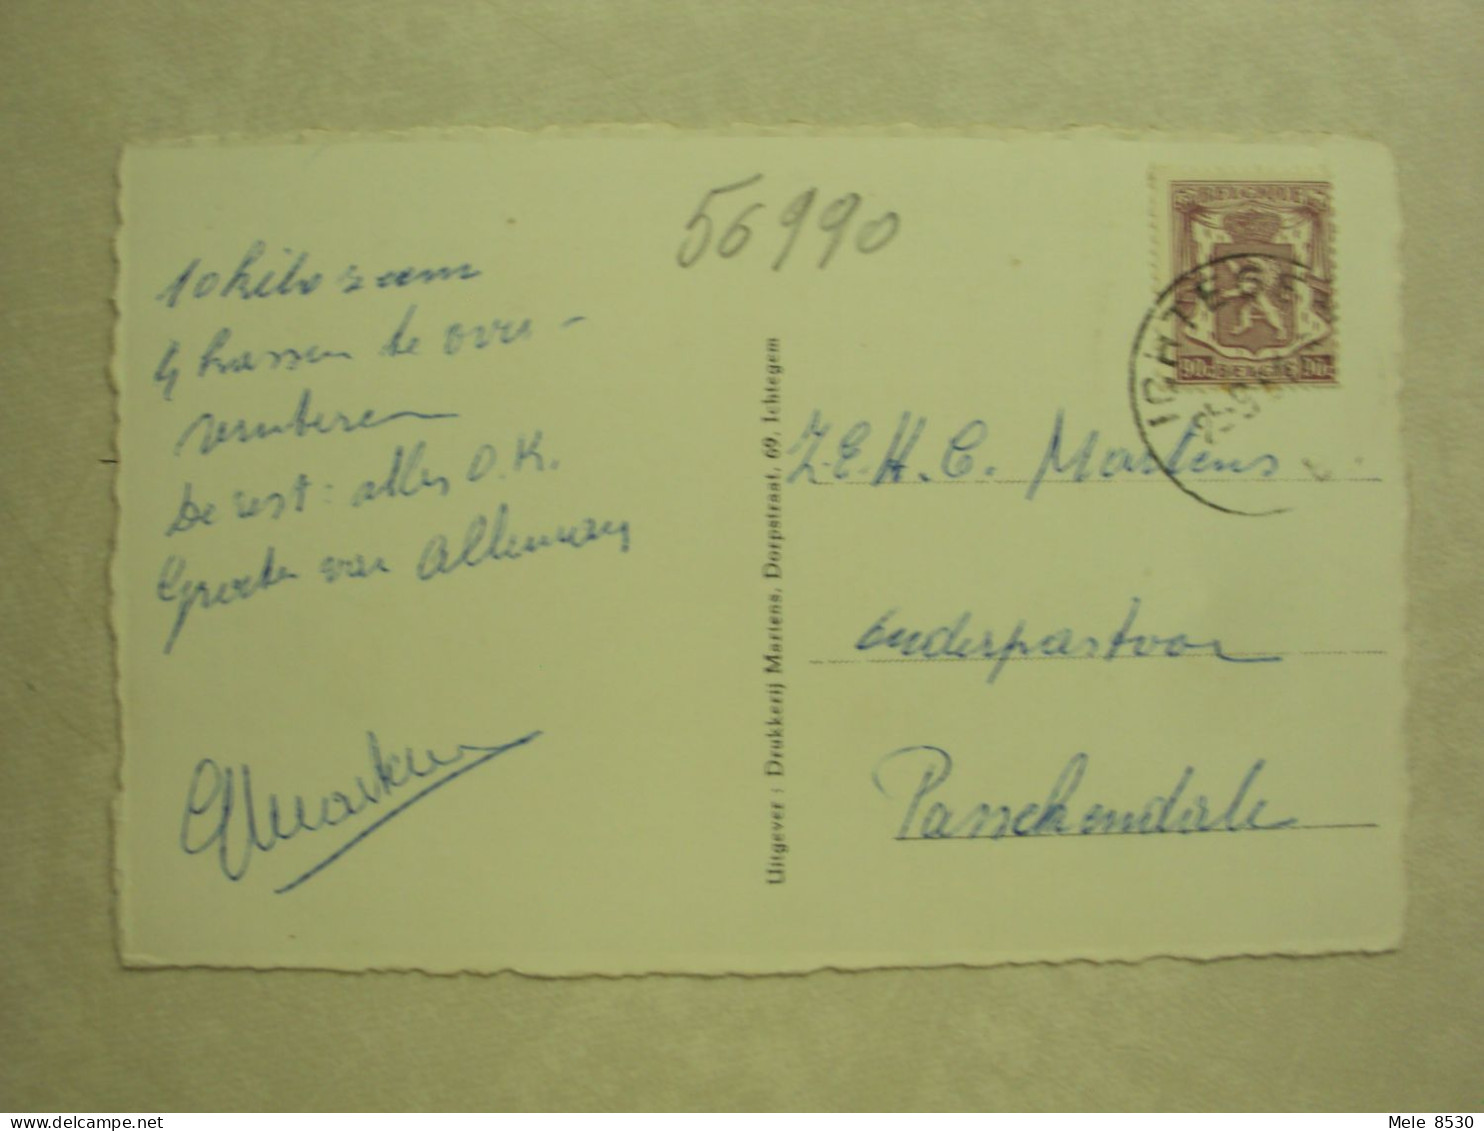 56990
10 kilo zeem
4 kassen te over-
De rest: alles O.K.
Groeten van Alleman
Uitgever : Drukkerij Martens, Dorpstraat, 69, Ichtegem
BELGIQUE
90c BELGIE 90c
ICHTEGEM
Z.E.H. C. Martens
onderpastoor
Passchendale
Mele 8530